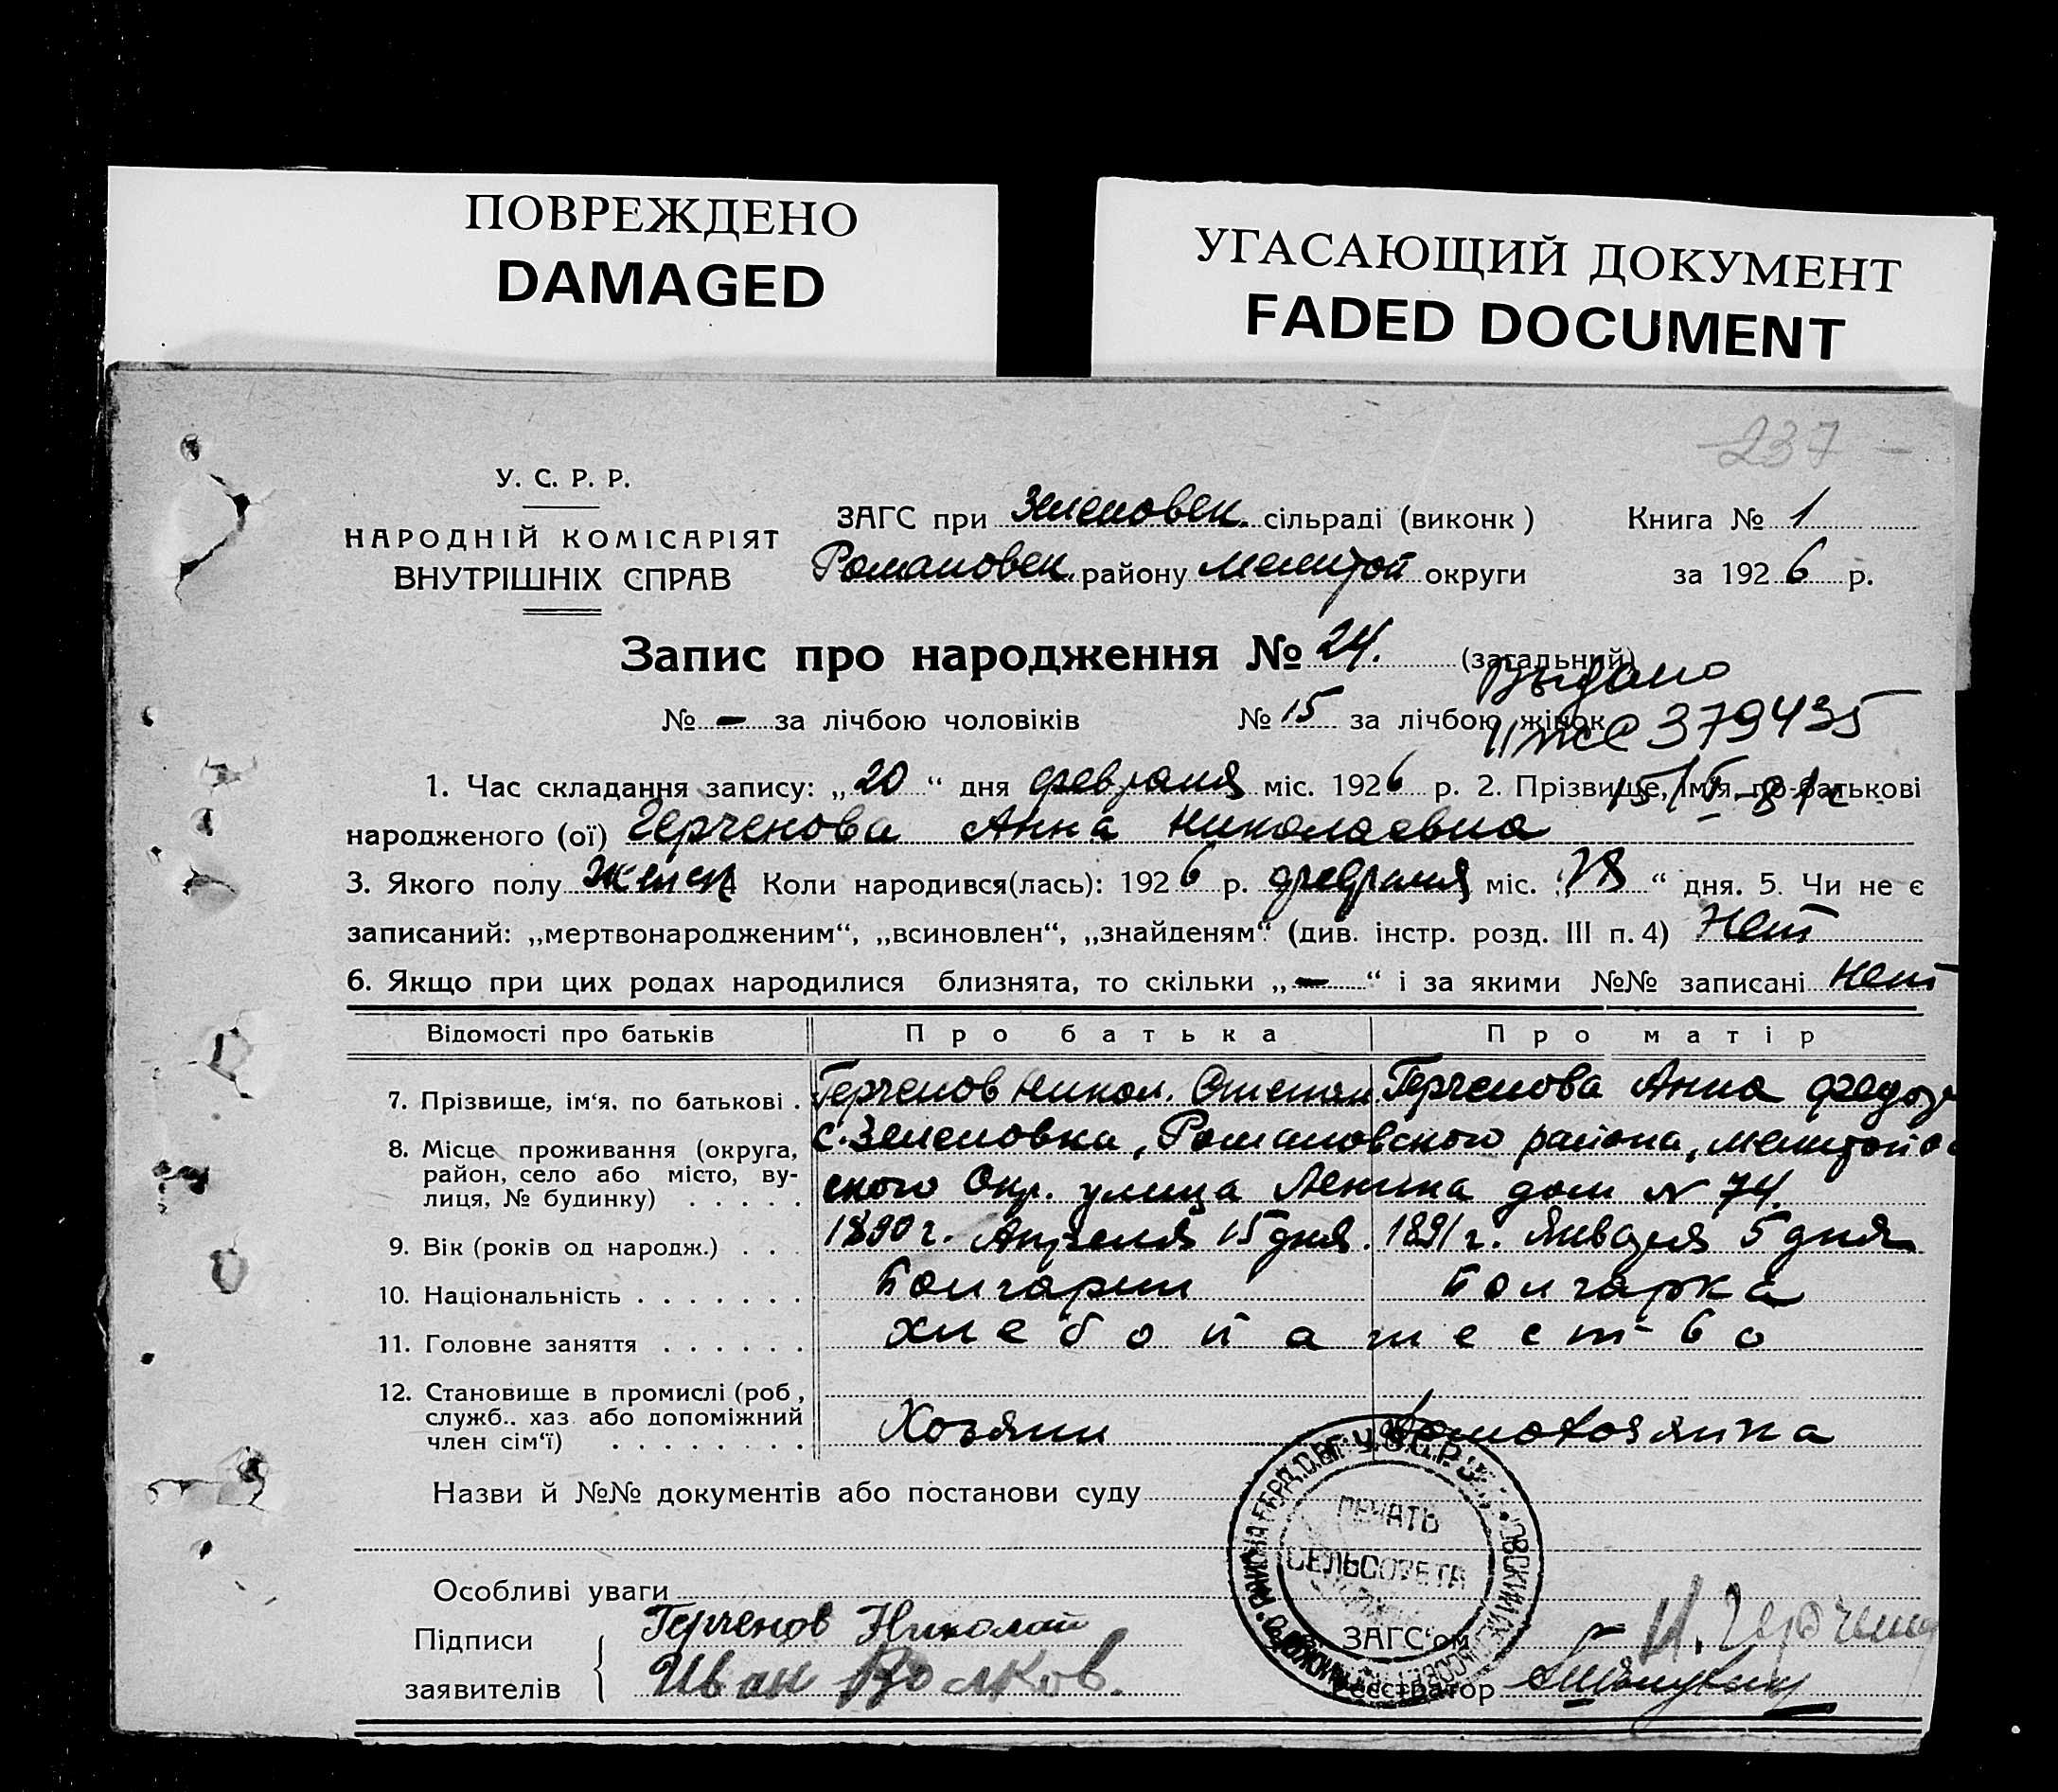 ПОВРЕЖДЕНО
DAMAGED
УГАСАЮЩИЙ ДОКУМЕНТ
FADED DOCUMENT
237
У. С. Р. Р.
НАРОДНІЙ КОМІСАРІЯТ
ВНУТРІШНІХ СПРАВ
ЗАГС при Зеленовск. сільраді (виконк)
Романовск. району Мелитоп округи
Книга № 1
за 1926 р.
Запис про народження № 24. (загальний)
Выдано
№ - за лічбою чоловіків № 15 за лічбою жінок
379435
1. Час складання запису: „20“ дня февраля міс. 1926 р. 2. Прізвище, ім'я, по-батькові
народженого (ої) Герченова Анна Николаевна
3. Якого полу женск Коли народився(лась): 1926 р. февраля міс. „18“ дня. 5. Чи не є
записаний: „мертвонародженим“, „всиновлен“, „знайденям“ (див. інстр. розд. III п. 4) Нет
6. Якщо при цих родах народилися близнята, то скільки „-“ і за якими №№ записані нет
Відомості про батьків Про батька Про матір
7. Прізвище, ім'я, по батькові . Герченов Никол. Степан. Герченова Анна Федор
8. Місце проживання (округа, район, село або місто, вулиця, № будинку) . . . . .
с. Зеленовка, Романовского района, Мелитопол
ского Окр. улица Ленина дом № 74.
9. Вік (років од народж.) . . . 1890 г. Апреля 15 дня. 1891 г. Января 5 дня
10. Національність . . . . . . . Болгарин Болгарка
11. Головне заняття . . . . . . хлебопашество
12. Становище в промислі (роб, служб., хаз. або допоміжний член сім'ї) . . . . . . . .
Хозяин Домохозяйка
Назви й №№ документів або постанови суду
Особливі уваги
ПЕЧАТЬ
СЕЛЬСОВЕТА
Підписи
заявителів
Герченов Николай
Иван Волков.
ЗАГС'ом
Н. Герчен
Реєстратор